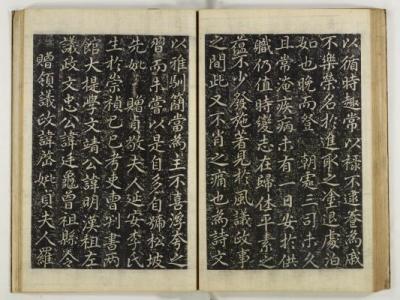 以循時趣常以祿不逮養爲戚
不樂榮名於進取之塗退處泊
如也晚而登 朝處三司未久
且常淹疾病未有一日安於供
職仍值時變志在歸休平素之
蘊不少發施著見於風議故事
之間此又不肖之痛也爲詩文
以雅馴蕳當爲主不喜浮夸之
習而平嘗以是自多自號松坡
先妣 贈貞敬夫人延安李氏
生於崇禎己巳考吏曹判書兩
館大提學文靖公諱明漢祖左
議政文忠公諱廷龜曾祖縣令
贈領議政諱啓妣貞夫人羅